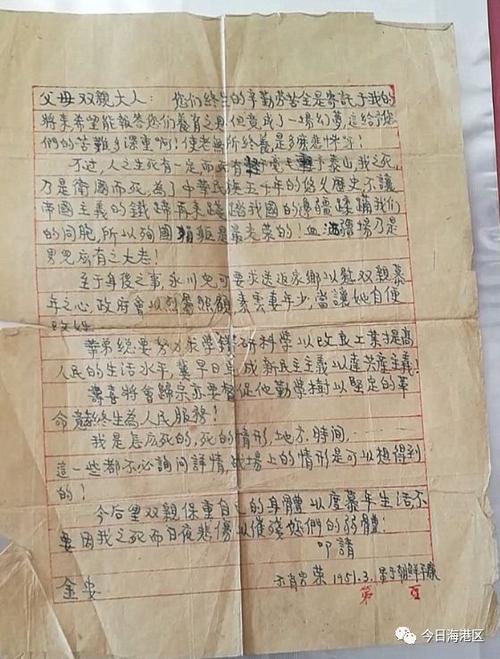 父母双親大人：您们終生的辛勤劳苦全是寄託于我的
将来希望能報答您们養育之恩但竟成了一場幻夢这给您
们的苦難多深重啊！使老無所終養是多麽悲惨呀！
不过，人之生死有一定而或有輕于毛重于泰山，我之死
乃是衛國而死，為了中華民族五千年的悠久歷史不讓
帝國主義的鉄蹄再来踐踏我國的邊疆蹂躏我们
的同胞，所以殉國捐軀是最光荣的！血洒疆場乃是
男兒應有之大志！
至于身後之事，永川兒可要求送返家鄉以慰双親暮
年之心，政府會以烈屬照顧，素雲妻年少，當讓她自便
改姓
華弟總要努力求学鑽研科学以改良工業提高
人民的生活水平，冀早日完成新民主主義以達共産主義！
壽喜将會歸宗亦要督促他勤学樹以堅定的革
命意終生為人民服務！
我是怎麽死的，死的情形，地方，時间，
這一些都不必詢问詳情战場上的情形是可以想得到
的！
今后望双親保重自己的身體以度暮年生活不
要因我之死而日夜悲傷以催殘您们的弱體！
叩請
金安
荣 1951.3.  于朝鮮
第 頁
今日海港区